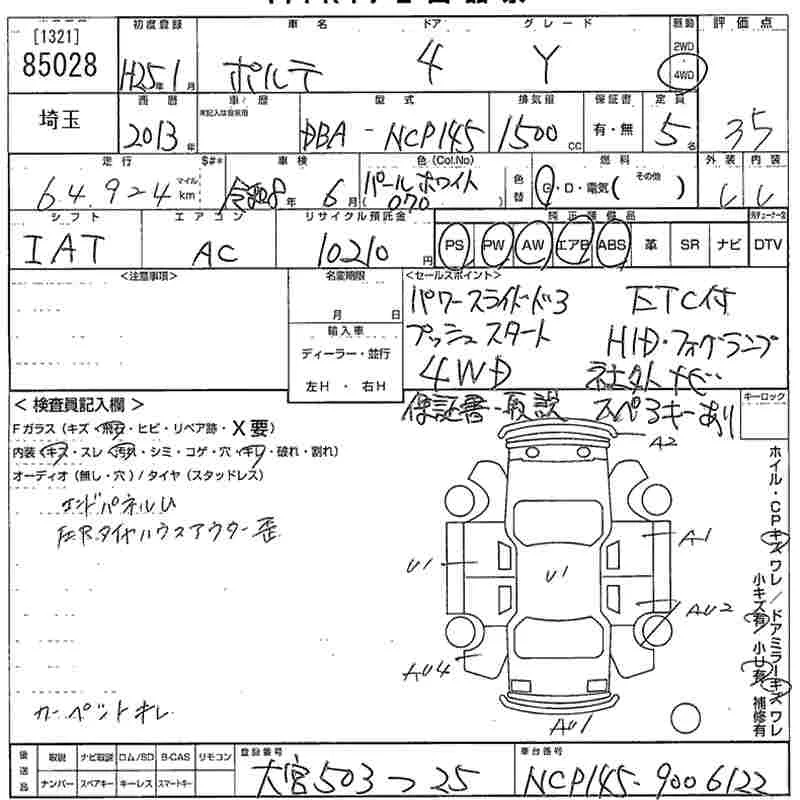 [1321]
85028
初度登録
車名
ドア
グレード
駆動
評価点
H25年1月
ポルテ
4
Y
2WD
4WD
埼玉
西暦
車歴
型式
排気量
保証書
定員
2013年
DBA - NCP145
1500cc
有・無
5名
35
走行
$#*
車検
色(Col.No)
燃料
外装
内装
6.4.924
マイル
km
令和8年6月
パールホワイト
(070)
色替
G・D・電気(その他)
シフト
エアコン
リサイクル預託金
純正装備品
IAT
AC
10210円
PS
PW
AW
エアB
ABS
革
SR
ナビ
DTV
<注意事項>
名変期限
月 日
輸入車
ディーラー・並行
左H・右H
<セールスポイント>
パワースライドドア
ETC付
プッシュスタート
HID・フォグランプ
4WD
社外ナビ
保証書・取説
スペアキーあり
キーロック
<検査員記入欄>
Fガラス(キズ・飛石・ヒビ・リペア跡・X要)
内装(キズ・スレ・汚れ・シミ・コゲ・穴・キレ・破れ・割れ)
オーディオ(無し・穴)/タイヤ(スタッドレス)
エンドパネルU
左Rタイヤハウスアウター歪
カーペットキレ
A2
A1
U1
U1
AU2
AU4
AU1
ホイル・CPキズワレ/ドアミラーキズワレ
小キズ有/小U有/補修有
後送品
取説
ナビ取説
ロム/SD
B-CAS
リモコン
ナンバー
スペアキー
キーレス
スマートキー
登録番号
大宮503つ25
車台番号
NCP145-9006122